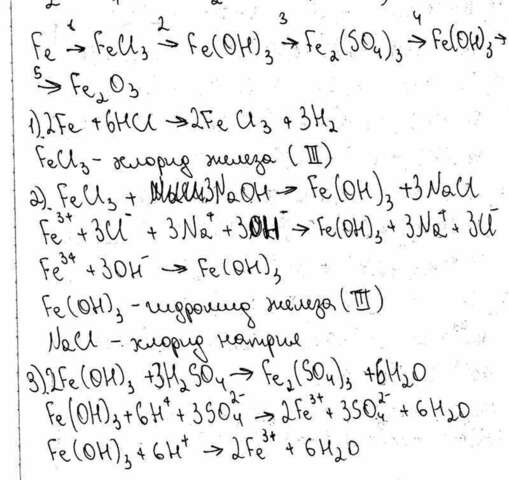 1 2 3 4
Fe → FeCl₃ → Fe(OH)₃ → Fe₂(SO₄)₃ → Fe(OH)₃ →
5
→ Fe₂O₃
1). 2Fe + 6HCl → 2FeCl₃ + 3H₂
FeCl₃ - хлорид железа (III)
2). FeCl₃ + 3NaOH → Fe(OH)₃ + 3NaCl
Fe³⁺ + 3Cl⁻ + 3Na⁺ + 3OH⁻ → Fe(OH)₃ + 3Na⁺ + 3Cl⁻
Fe³⁺ + 3OH⁻ → Fe(OH)₃
Fe(OH)₃ - гидроксид железа (III)
NaCl - хлорид натрия
3). 2Fe(OH)₃ + 3H₂SO₄ → Fe₂(SO₄)₃ + 6H₂O
Fe(OH)₃ + 6H⁺ + 3SO₄²⁻ → 2Fe³⁺ + 3SO₄²⁻ + 6H₂O
Fe(OH)₃ + 6H⁺ → 2Fe³⁺ + 6H₂O